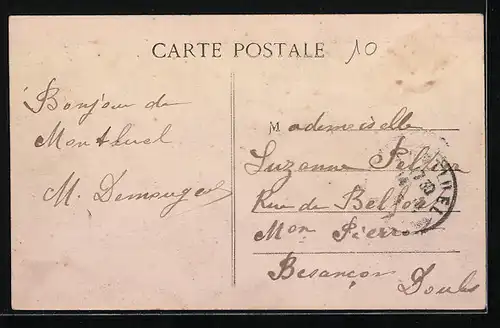 CARTE POSTALE
10
Bonjour de
Montluel
Mademoiselle
Suzanne
Rue de Belfort
Mon Pierre
Besançon
Doubs